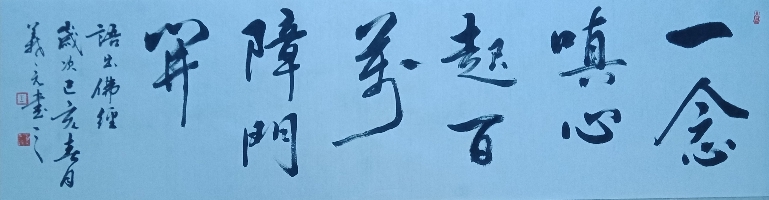 一念
嗔心
起百
萬
障門
開
語出佛經
歲次己亥春月
義元書之